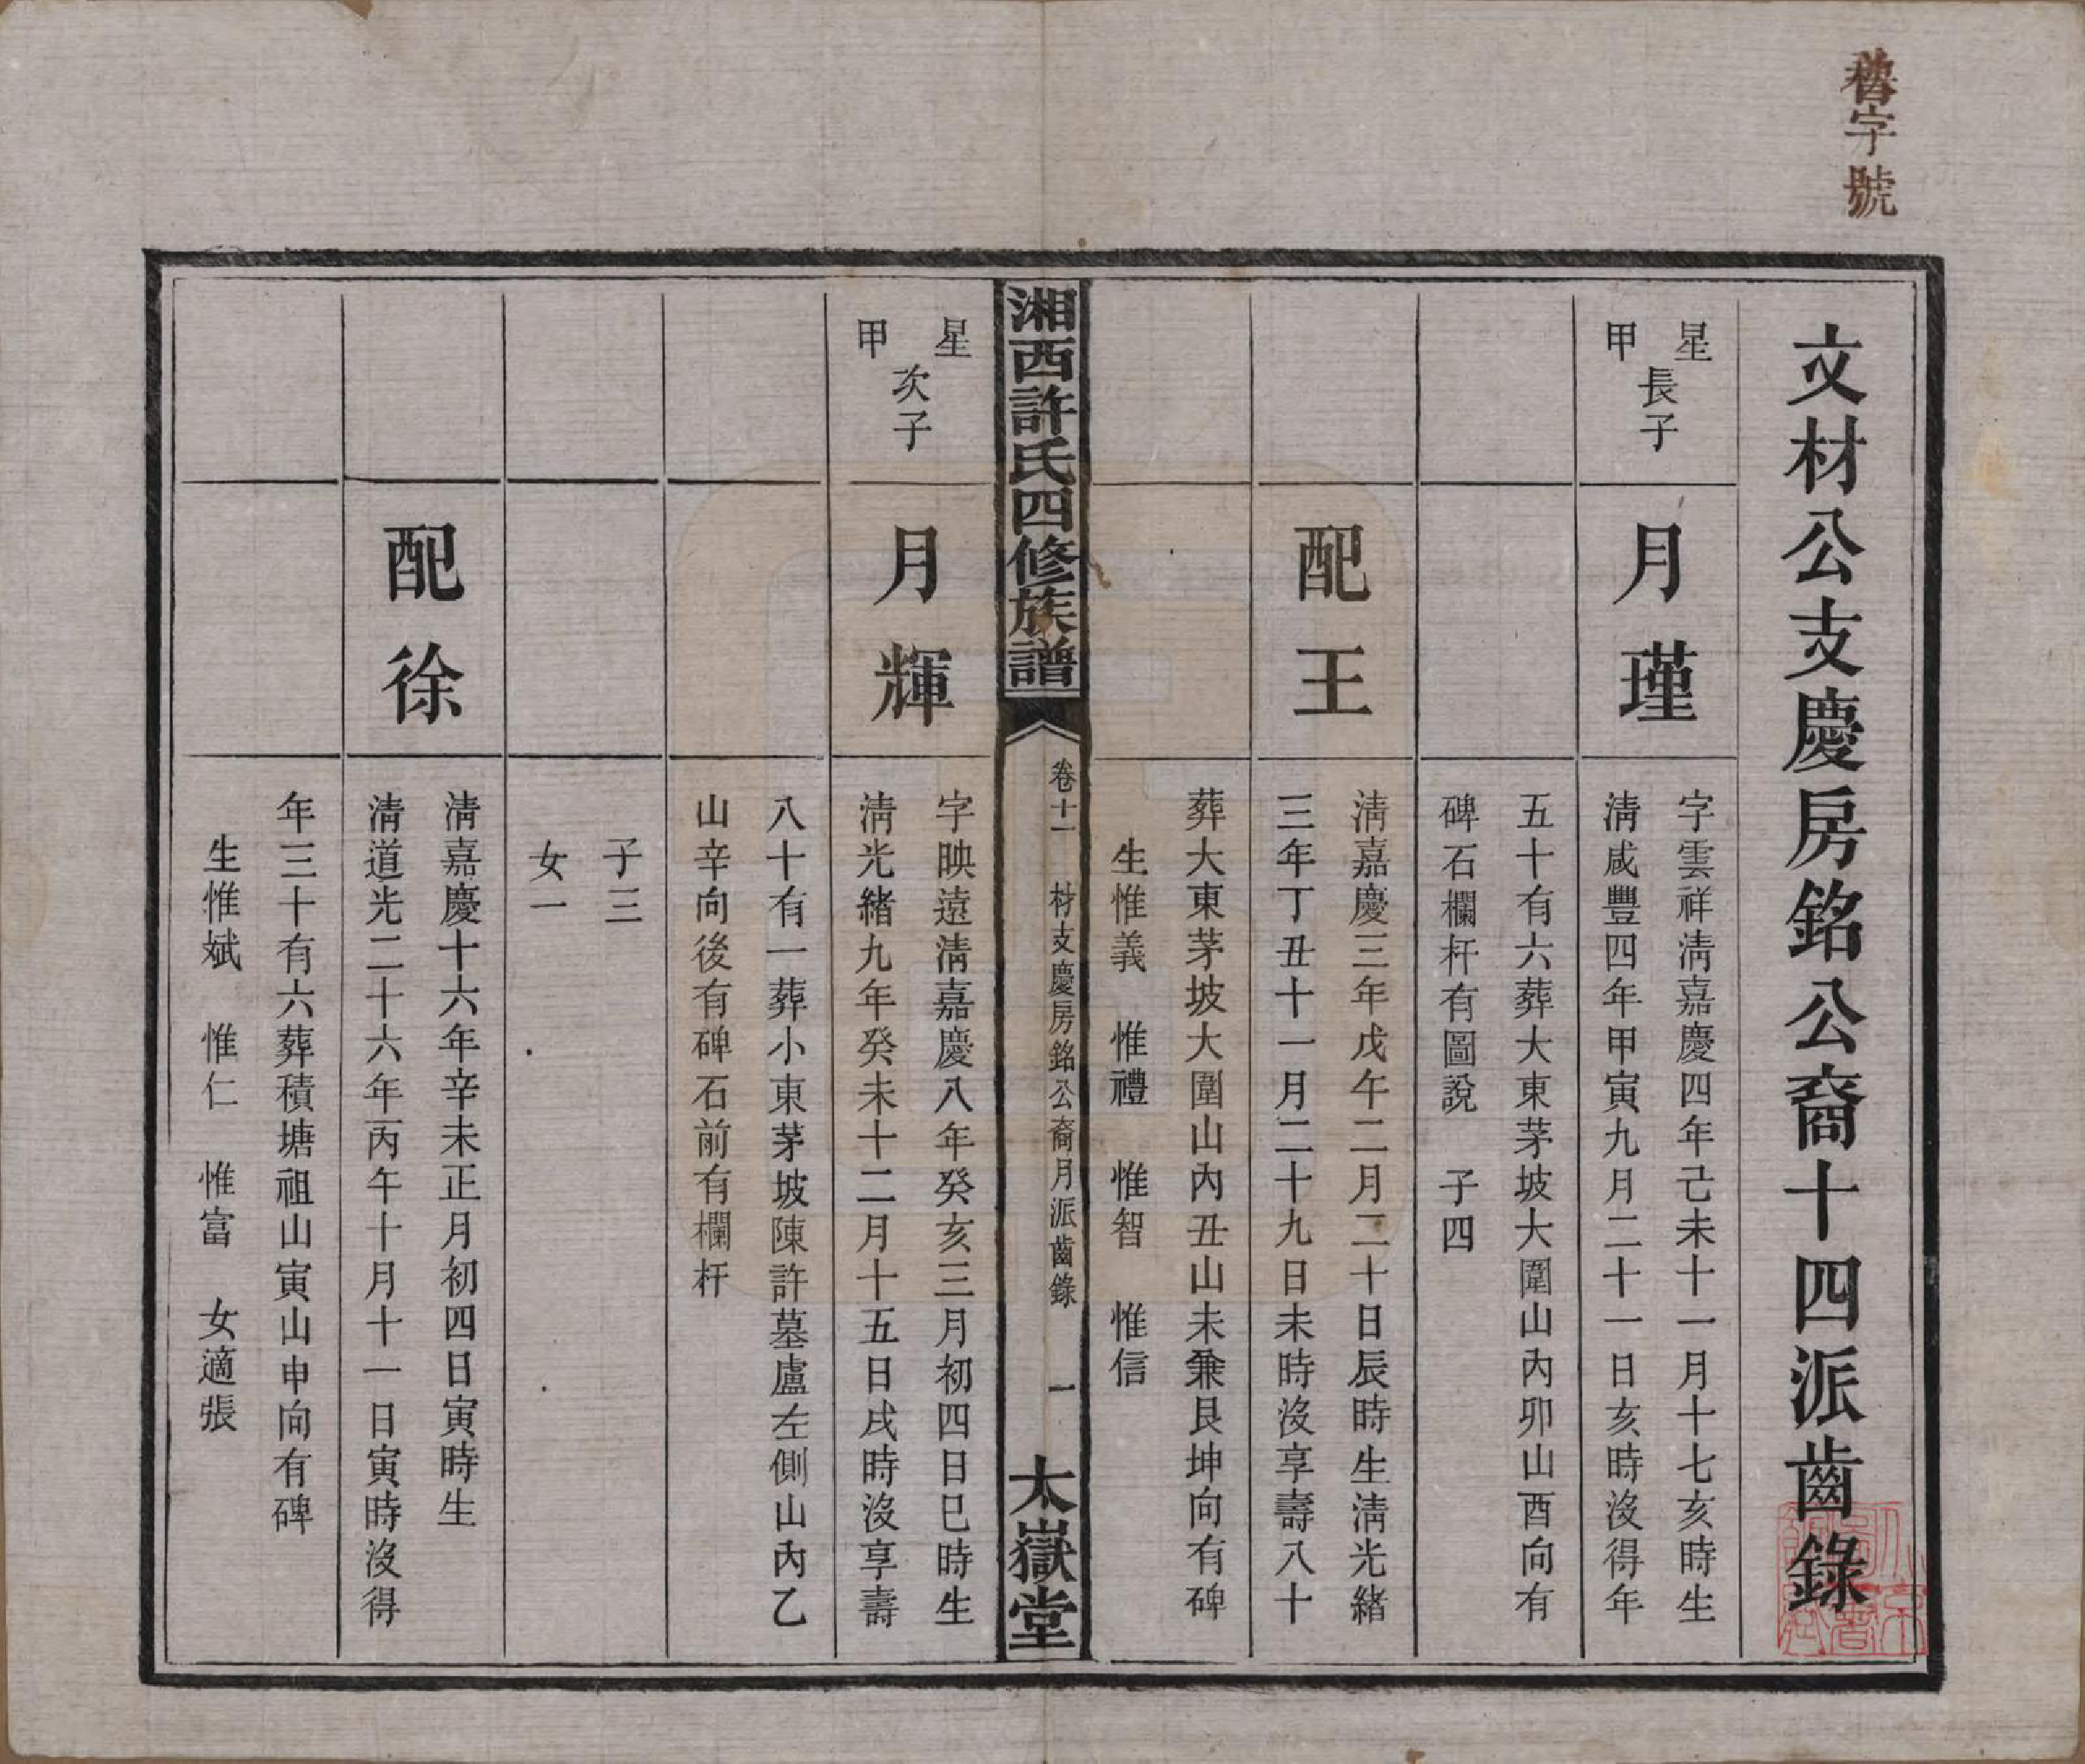 字號
文材公支慶房銘公裔十四派齒錄
星甲長子
月瑾
字雲祥淸嘉慶四年己未十一月十七亥時生
淸咸豐四年甲寅九月二十一日亥時沒得年
五十有六葬大東茅坡大圍山內卯山酉向有
碑石欄杆有圖說　子四
配王
淸嘉慶三年戊午二月二十日辰時生淸光緖
三年丁丑十一月二十九日未時沒享壽八十
葬大東茅坡大圍山內丑山未兼艮坤向有碑
生惟義　惟禮　惟智　惟信
湘西許氏四修族譜
卷十一　材支慶房銘公裔月派齒錄　一
太嶽堂
星甲次子
月輝
字映遠淸嘉慶八年癸亥三月初四日巳時生
淸光緖九年癸未十二月十五日戌時沒享壽
八十有一葬小東茅坡陳許墓廬左側山內乙
山辛向後有碑石前有欄杆
子三
女一
配徐
淸嘉慶十六年辛未正月初四日寅時生
淸道光二十六年丙午十月十一日寅時沒得
年三十有六葬積塘祖山寅山申向有碑
生惟斌　惟仁　惟富　女適張